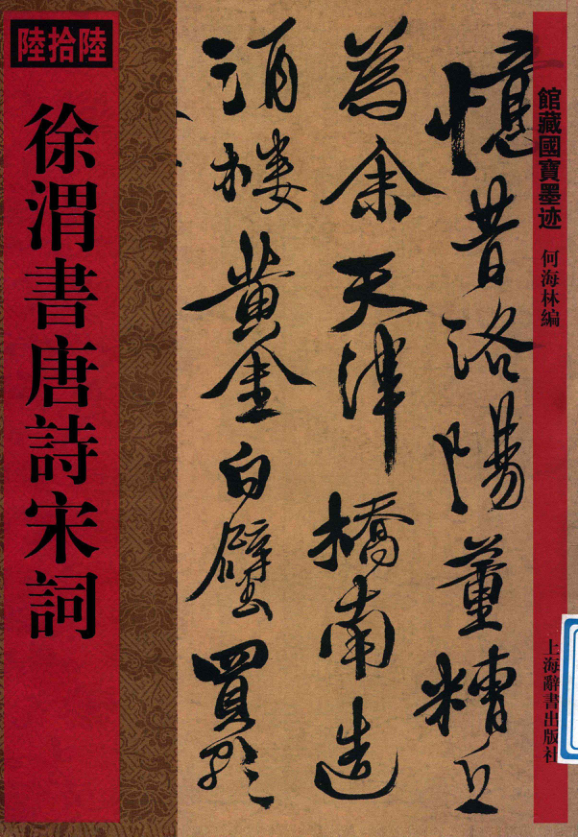 館藏國寶墨迹
何海林編
上海辭書出版社
憶昔洛陽董糟丘
為余天津橋南造
酒楼黄金白璧買歌
陸拾陸
徐渭書唐詩宋詞